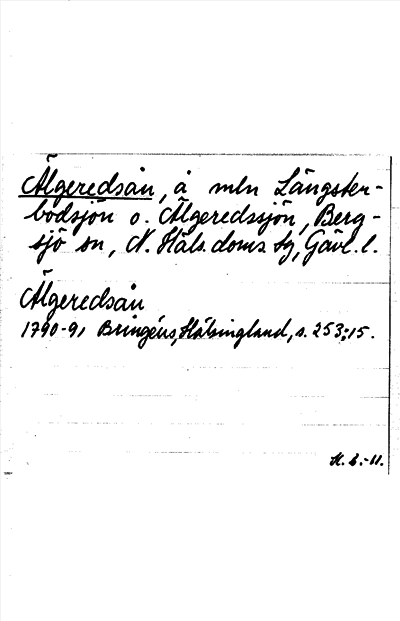 Älgeredsån, å mln Långsten-
bodsjön o. Älgeredssjön, Berg-
sjö sn, N. Häls. doms. tg, Gävl. l.
Älgeredsån
1790-91 Bringéus, Hälsingland, s. 253:15.